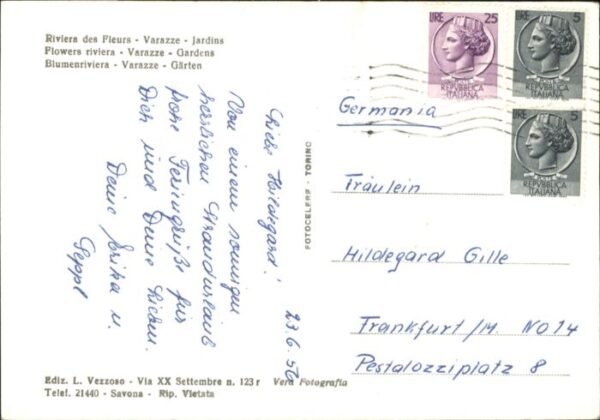 Riviera des Fleurs - Varazze - Jardins
Flowers riviera - Varazze - Gardens
Blumenriviera - Varazze - Gärten
LIRE 25
REPVBBLICA
ITALIANA
LIRE 5
REPVBBLICA
ITALIANA
LIRE 5
REPVBBLICA
ITALIANA
23.6.56
Liebe Hildegard!
Von einem sonnigen
herrlichen Strandurlaub
frohe Feriengrüße für
Dich und Deine Lieben.
Deine Erika u.
Seppl
FOTOCELERE - TORINO
Germania
Fräulein
Hildegard Gille
Frankfurt/M. NO 14
Pestalozziplatz 8
Ediz. L. Vezzoso - Via XX Settembre n. 123 r Vera Fotografia
Telef. 21440 - Savona - Rip. Vietata